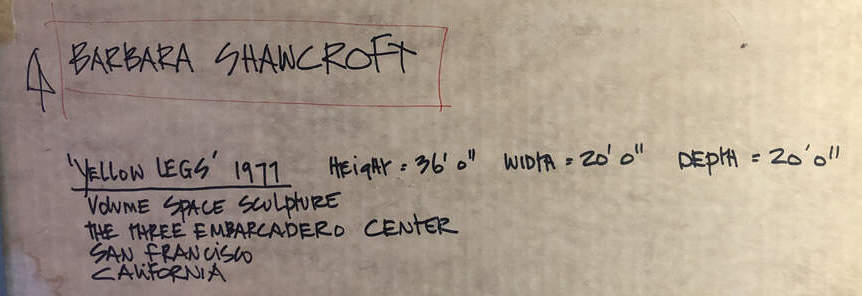 BARBARA SHAWCROFT
'YELLOW LEGS' 1977 HEIGHT = 36' 0" WIDTH = 20' 0" DEPTH = 20' 0"
VOLUME SPACE SCULPTURE
THE THREE EMBARCADERO CENTER
SAN FRANCISCO
CALIFORNIA